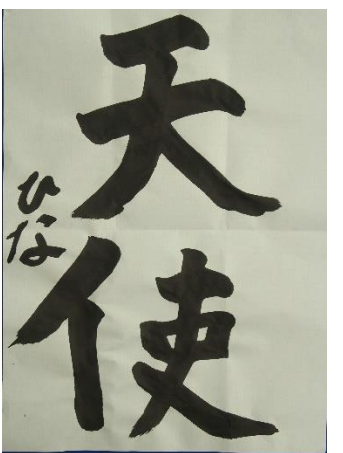 天使
ひな